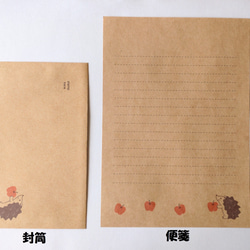 封筒
便箋